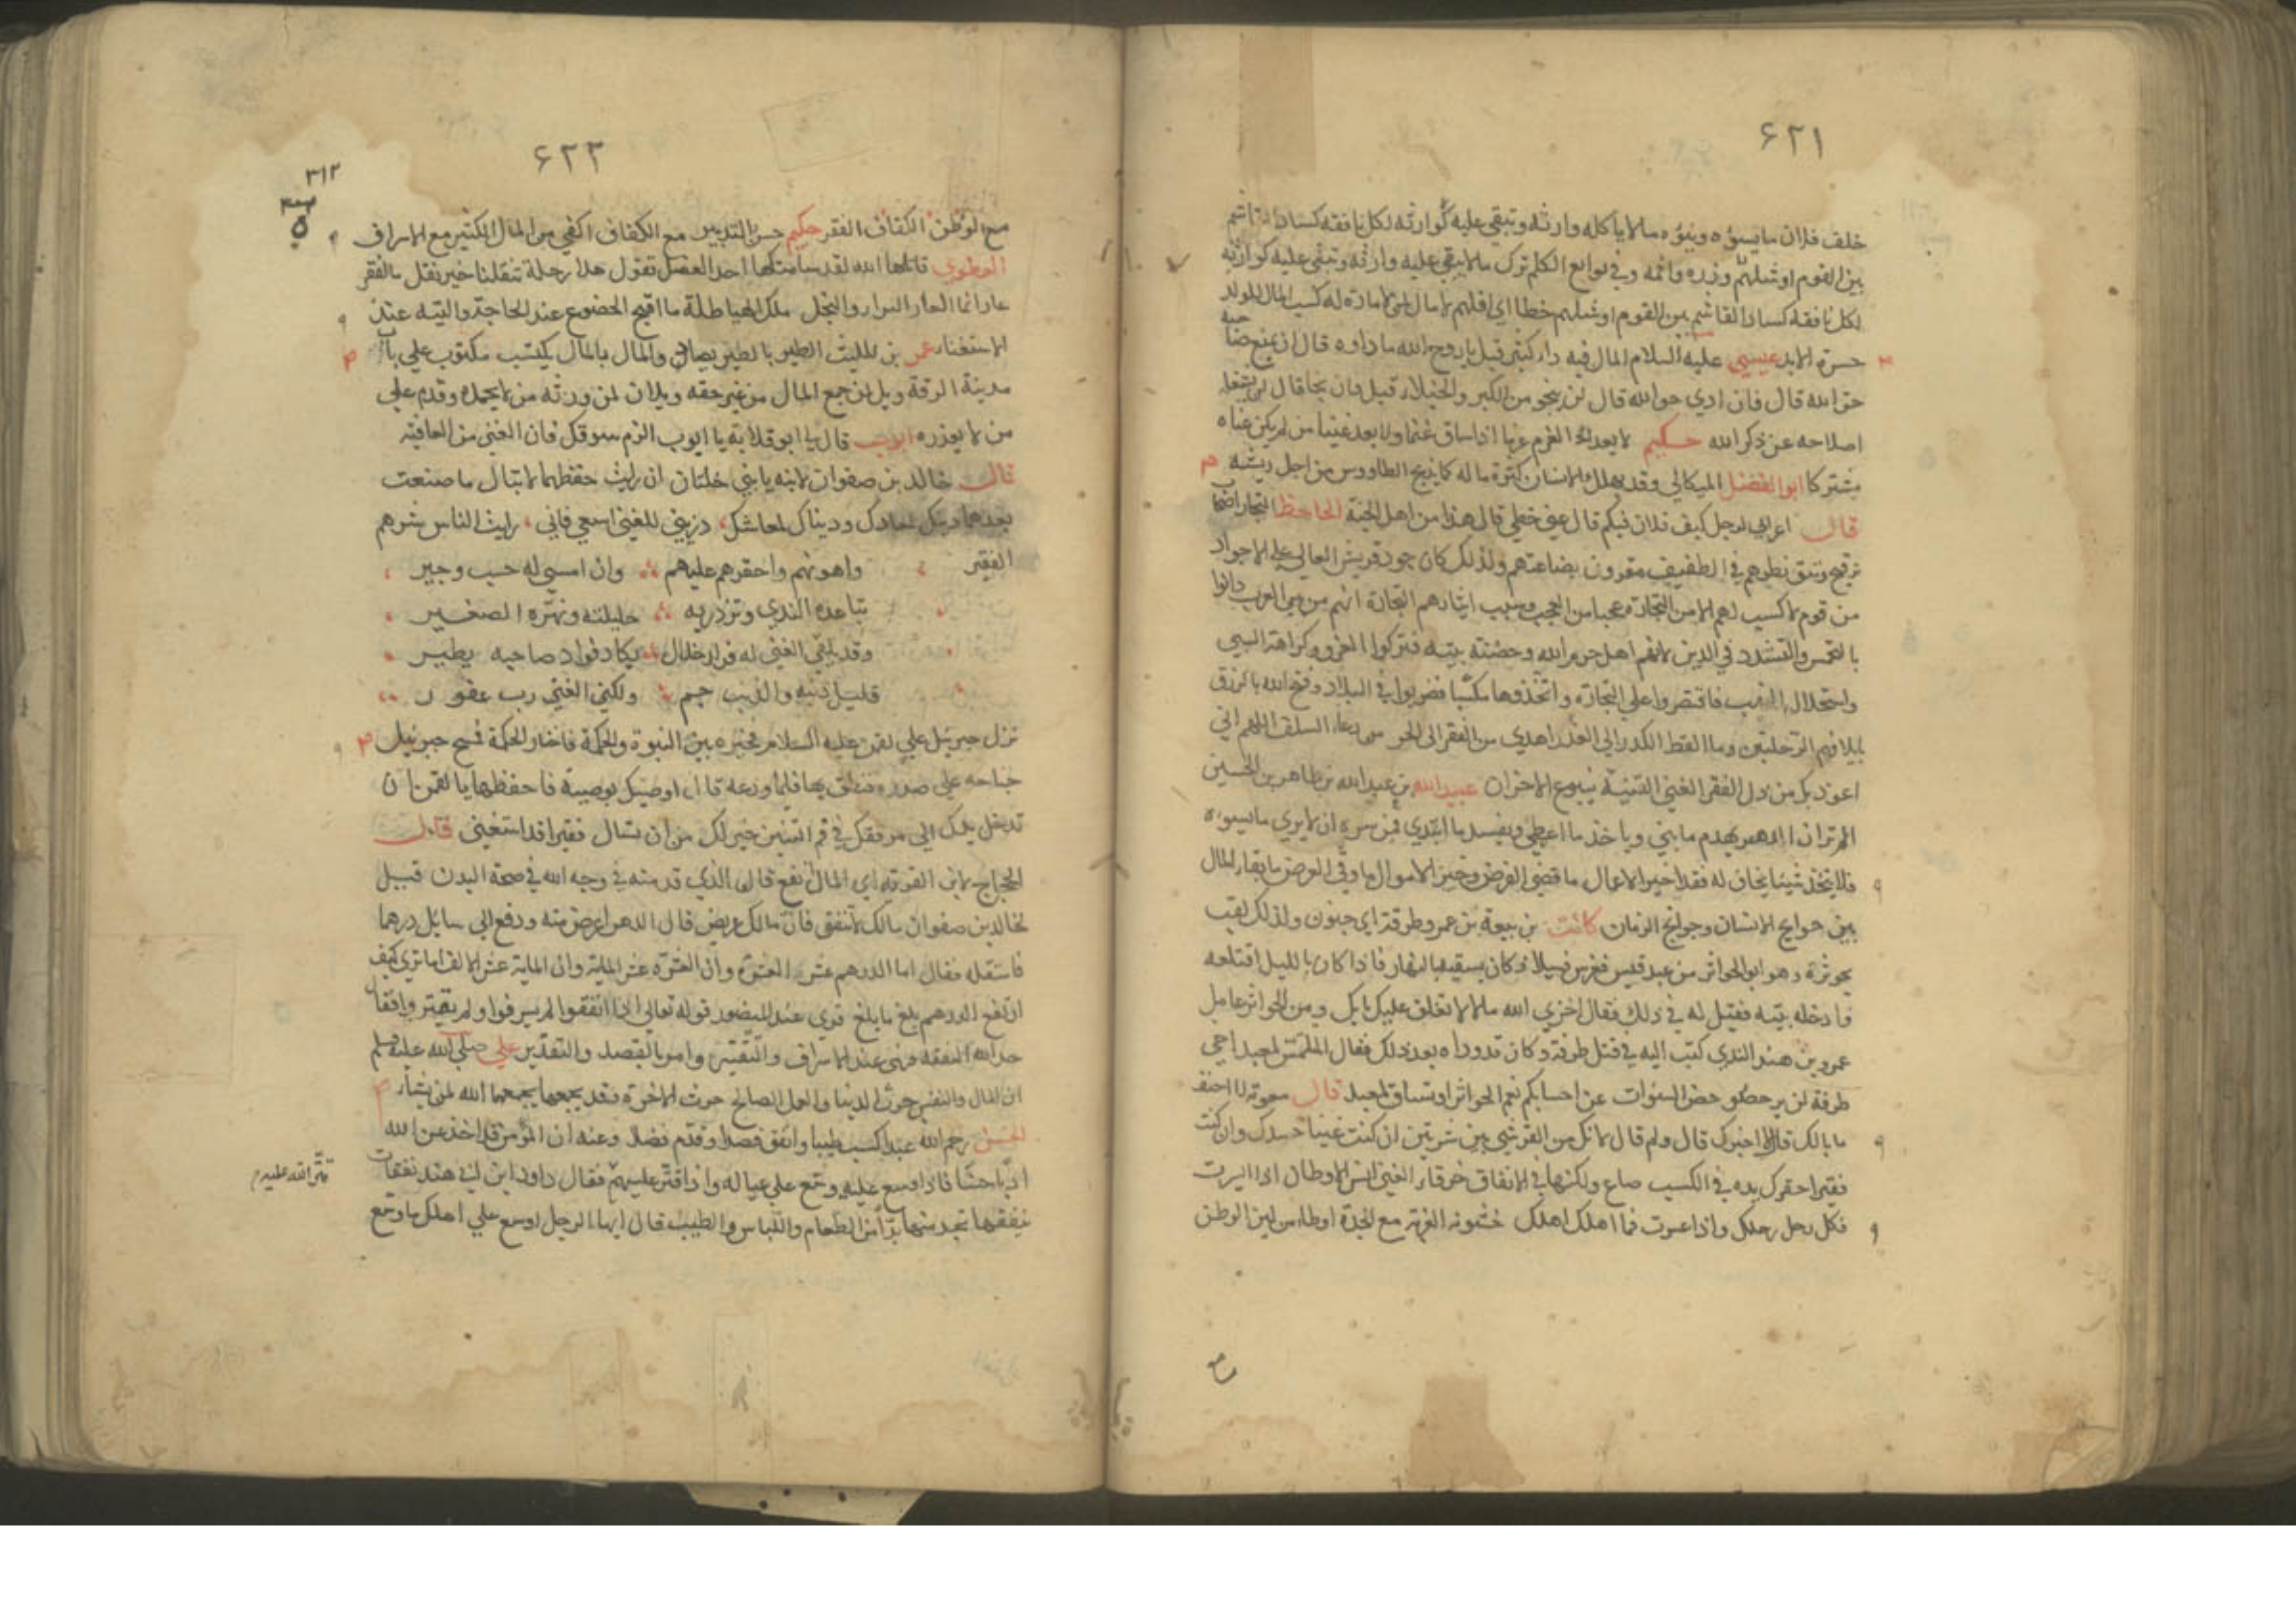 ۶۲۱
خلف فلان ما يسوءه وينوءه مالا ياكله وارثه وتبقى عليه كوارثه لكل نافقه كساد القاشم
بين القوم اوشلهم وزره واثمه وفي نوابغ الكلم ترك مالا يبقى عليه وارثه وتبقى عليه كوارثه
لكل نافقه كساد القاشم بين القوم اوشلهم خطا اي اقلهم لا مال لمن لا مادة له كسب المال للولد
حسرة الابد عيسى عليه السلام المال فيه دا كثير قيل يا روح الله ما داوه قال ان يمنع صاحبه
حق الله قال فان ادي حق الله قال لن ينجو من الكبر والخيلاء قيل فان نجا قال لن يشغله
اصلاحه عن ذكر الله حكيم لا يعد الغرم غرما اذا ساق غنما ولا يعد غنيا من لم يكن غناه
مشتركا ابو الفضل الميكالي وقد يهلك الانسان كثرة ماله كما يذبح الطاووس من اجل ريشه
قال اعرابي لرجل كيف فلان فيكم قال غني حظي قال هذا من اهل الجنة الجاحظ التجار
ترقيح وتنق نظرهم في الطفيف مقرون بضاعتهم ولذلك كان جود قريش العالي على الاجواد
من قوم لا كسب لهم الا من التجارة عجبا من العجب وسبب ايثارهم التجارة انهم من بين العرب دانوا
بالتحمس والتشدد في الدين لانهم اهل حرم الله وحضنة بيته فتركوا الغزو وكراهة السبي
واستحلال فاقتصروا على التجارة واتخذوها مكسبا فضربوا في البلاد وفتح الله بالرزق
بايلافهم الرحلتين وما القطا الكدر الى الغدر اهدى من الفقر الى الحر من دعاء السلف اللهم اني
اعوذ بك من ذل الفقر الغني القنية ينبوع الاحزان عبيد الله بن عبد الله بن طاهر بن الحسين
الم تر ان الدهر يهدم ما بنى وياخذ ما اعطى ويفسد ما ابتدى فمن سره ان لا يرى ما يسوءه
فلا يتخذ شيئا يخاف له فقدا خير الاعمال ما قضى الفرض وخير الاموال ما وقى العرض ما بقاء المال
بين حوايج الانسان وجوايح الزمان كانت بن ربيعة بن عمرو طرقة اي جنون ولذلك لقب
بحوثرة وهو ابو الحواثر من عبد قيس فغرس فسيلا فكان يسقيه بالنهار فاذا كان بالليل اقتلعه
فادخله بيته فقيل له في ذلك فقال اخزى الله مالا لا تغلق عليك بابك ومن الحواثر عامل
عمرو بن هند الذي كتب اليه في قتل طرفة وكان قد وداه بعد ذلك فقال المتلمس لمعبد اخي
طرفة لن يرحض السنوات عن احسابكم نعم الحواثر اذ تساق لمعبد قال معوية لاحنف
ما بالك قال لا احبوك قال ولم قال لانك من القرشي بين شريتين ان كنت غنيا حسدك وان كنت
فقيرا حقرك يده في الكسب صاع ولكنها في الانفاق خرقاء الغني انس الاوطان اذا ايسرت
فكل رحل رحلك واذا اعسرت فما اهلك اهلك خشونه الغربة مع الجدة اوطاء من لين الوطن
۶۲۳
۳۱۲
مع الوطن الكفاف الفقر حكيم حسن التدبير مع الكفاف اكفى من المال الكثير مع الاسراف
العطوي قاتلها الله لقد سامتكها احدى العضل تقول هلا رحلة تنقلنا خير نقل ما الفقر
عار انما العار البرار والبخل ملك الهياطلة ما اقبح الخضوع عند الحاجة والتيه عند
الاستغناء عمر بن الليث الطير بالطير يصاد والمال بالمال يكتسب مكتوب على باب
مدينة الرقة ويل لمن جمع المال من غير حقه وويلان لمن ورثه من لا يحمده وقدم على
من لا يعذره ايوب قال لي ابو قلابة يا ايوب الزم سوقك فان الغنى من العافية
قال خالد بن صفوان لابنه يا بني خلتان ان رايت حفظهما لا تبال ما صنعت
بعدهما دينك لمعادك ودنياك لمعاشك ذريني للغنى اسعى فاني رايت الناس شرهم
الفقير واهونهم واحقرهم عليهم وان امسى له حسب وخير
تباعده الندي وتزدريه حليلته وينهره الصغير
وقد يلقى الغني له فرط جلال يكاد فواد صاحبه يطير
قليل ذنبه والذنب جم ولكن الغنى رب غفور
نزل جبرئيل على لقمن عليه السلام فخيره بين النبوة والحكمة فاختار الحكمة فمسح جبرئيل
جناحه على صدره فنطق بها فلما ودعه قال اوصيك بوصية فاحفظها يا لقمن ان
تدخل يدك الى مرفقك في فم التنين خير لك من ان تسال فقيرا قد استغنى قال
الحجاج لابن القرية اي المال انفع قال الذي قدمته في وجه الله في صحة البدن قيل
لخالد بن صفوان مالك لا تنفق فان مالك عريض قال الدهر اعرض منه ودفع الى سايل درهما
فاستقله فقال اما الدرهم عشر العشرة وان العشرة عشر الماية وان الماية عشر الالف اما ترى كيف
ارتفع الدرهم بلغ ما بلغ قرئ عند المنصور قوله تعالى اذا انفقوا لم يسرفوا ولم يقتروا فقال
حد الله النفقة ونهى عند الاسراف والتقتير وامر بالقصد والتقدير علي صلى الله عليه وسلم
ان المال والنفس حرث الدنيا والعمل الصالح حرث الاخرة فقد يجمعهما الله لمن يشاء
الحسن رحم الله عبدا كسب طيبا وانفق قصدا وقدم فضلا وعنه ان المؤمن قد اخذ عن الله
ادبا حسنا فاذا وسع عليه وسع على عياله واذا اقتر عليهم فقال داود ابن ابي هند نفقات
قتر الله عليه
ينفقها تجد منها بدا من الطعام واللباس والطيب قال ايها الرجل اوسع على اهلك ما وسع